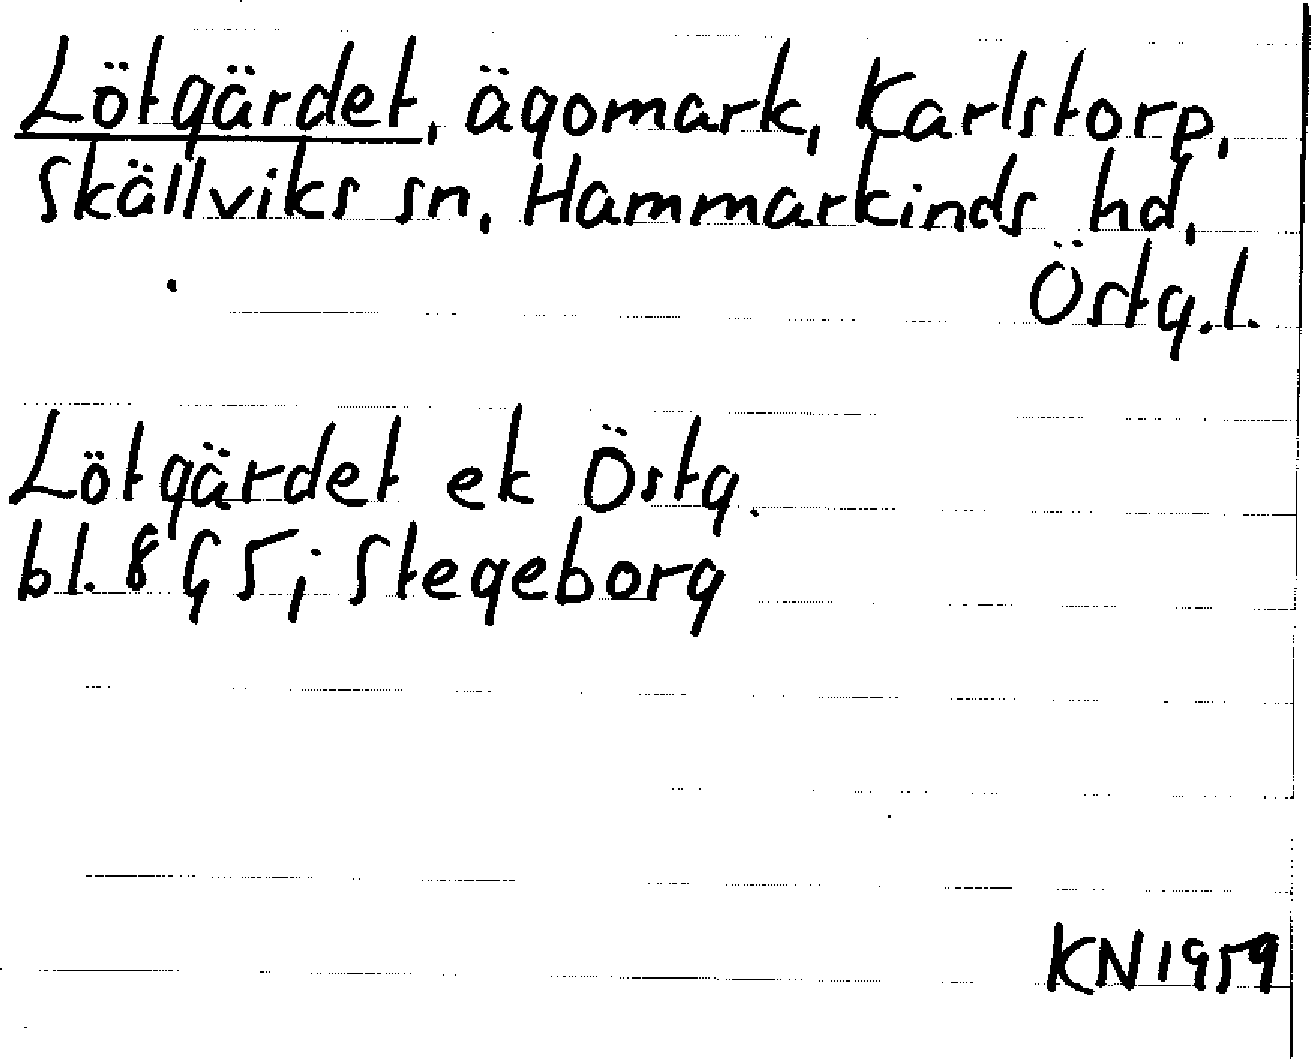 Lötgärdet, ägomark, Karlstorp,
Skällviks sn, Hammarkinds hd,
Östg.l.
Lötgärdet ek Östg.
bl. 8 G 5 i Stegeborg
KN 1959